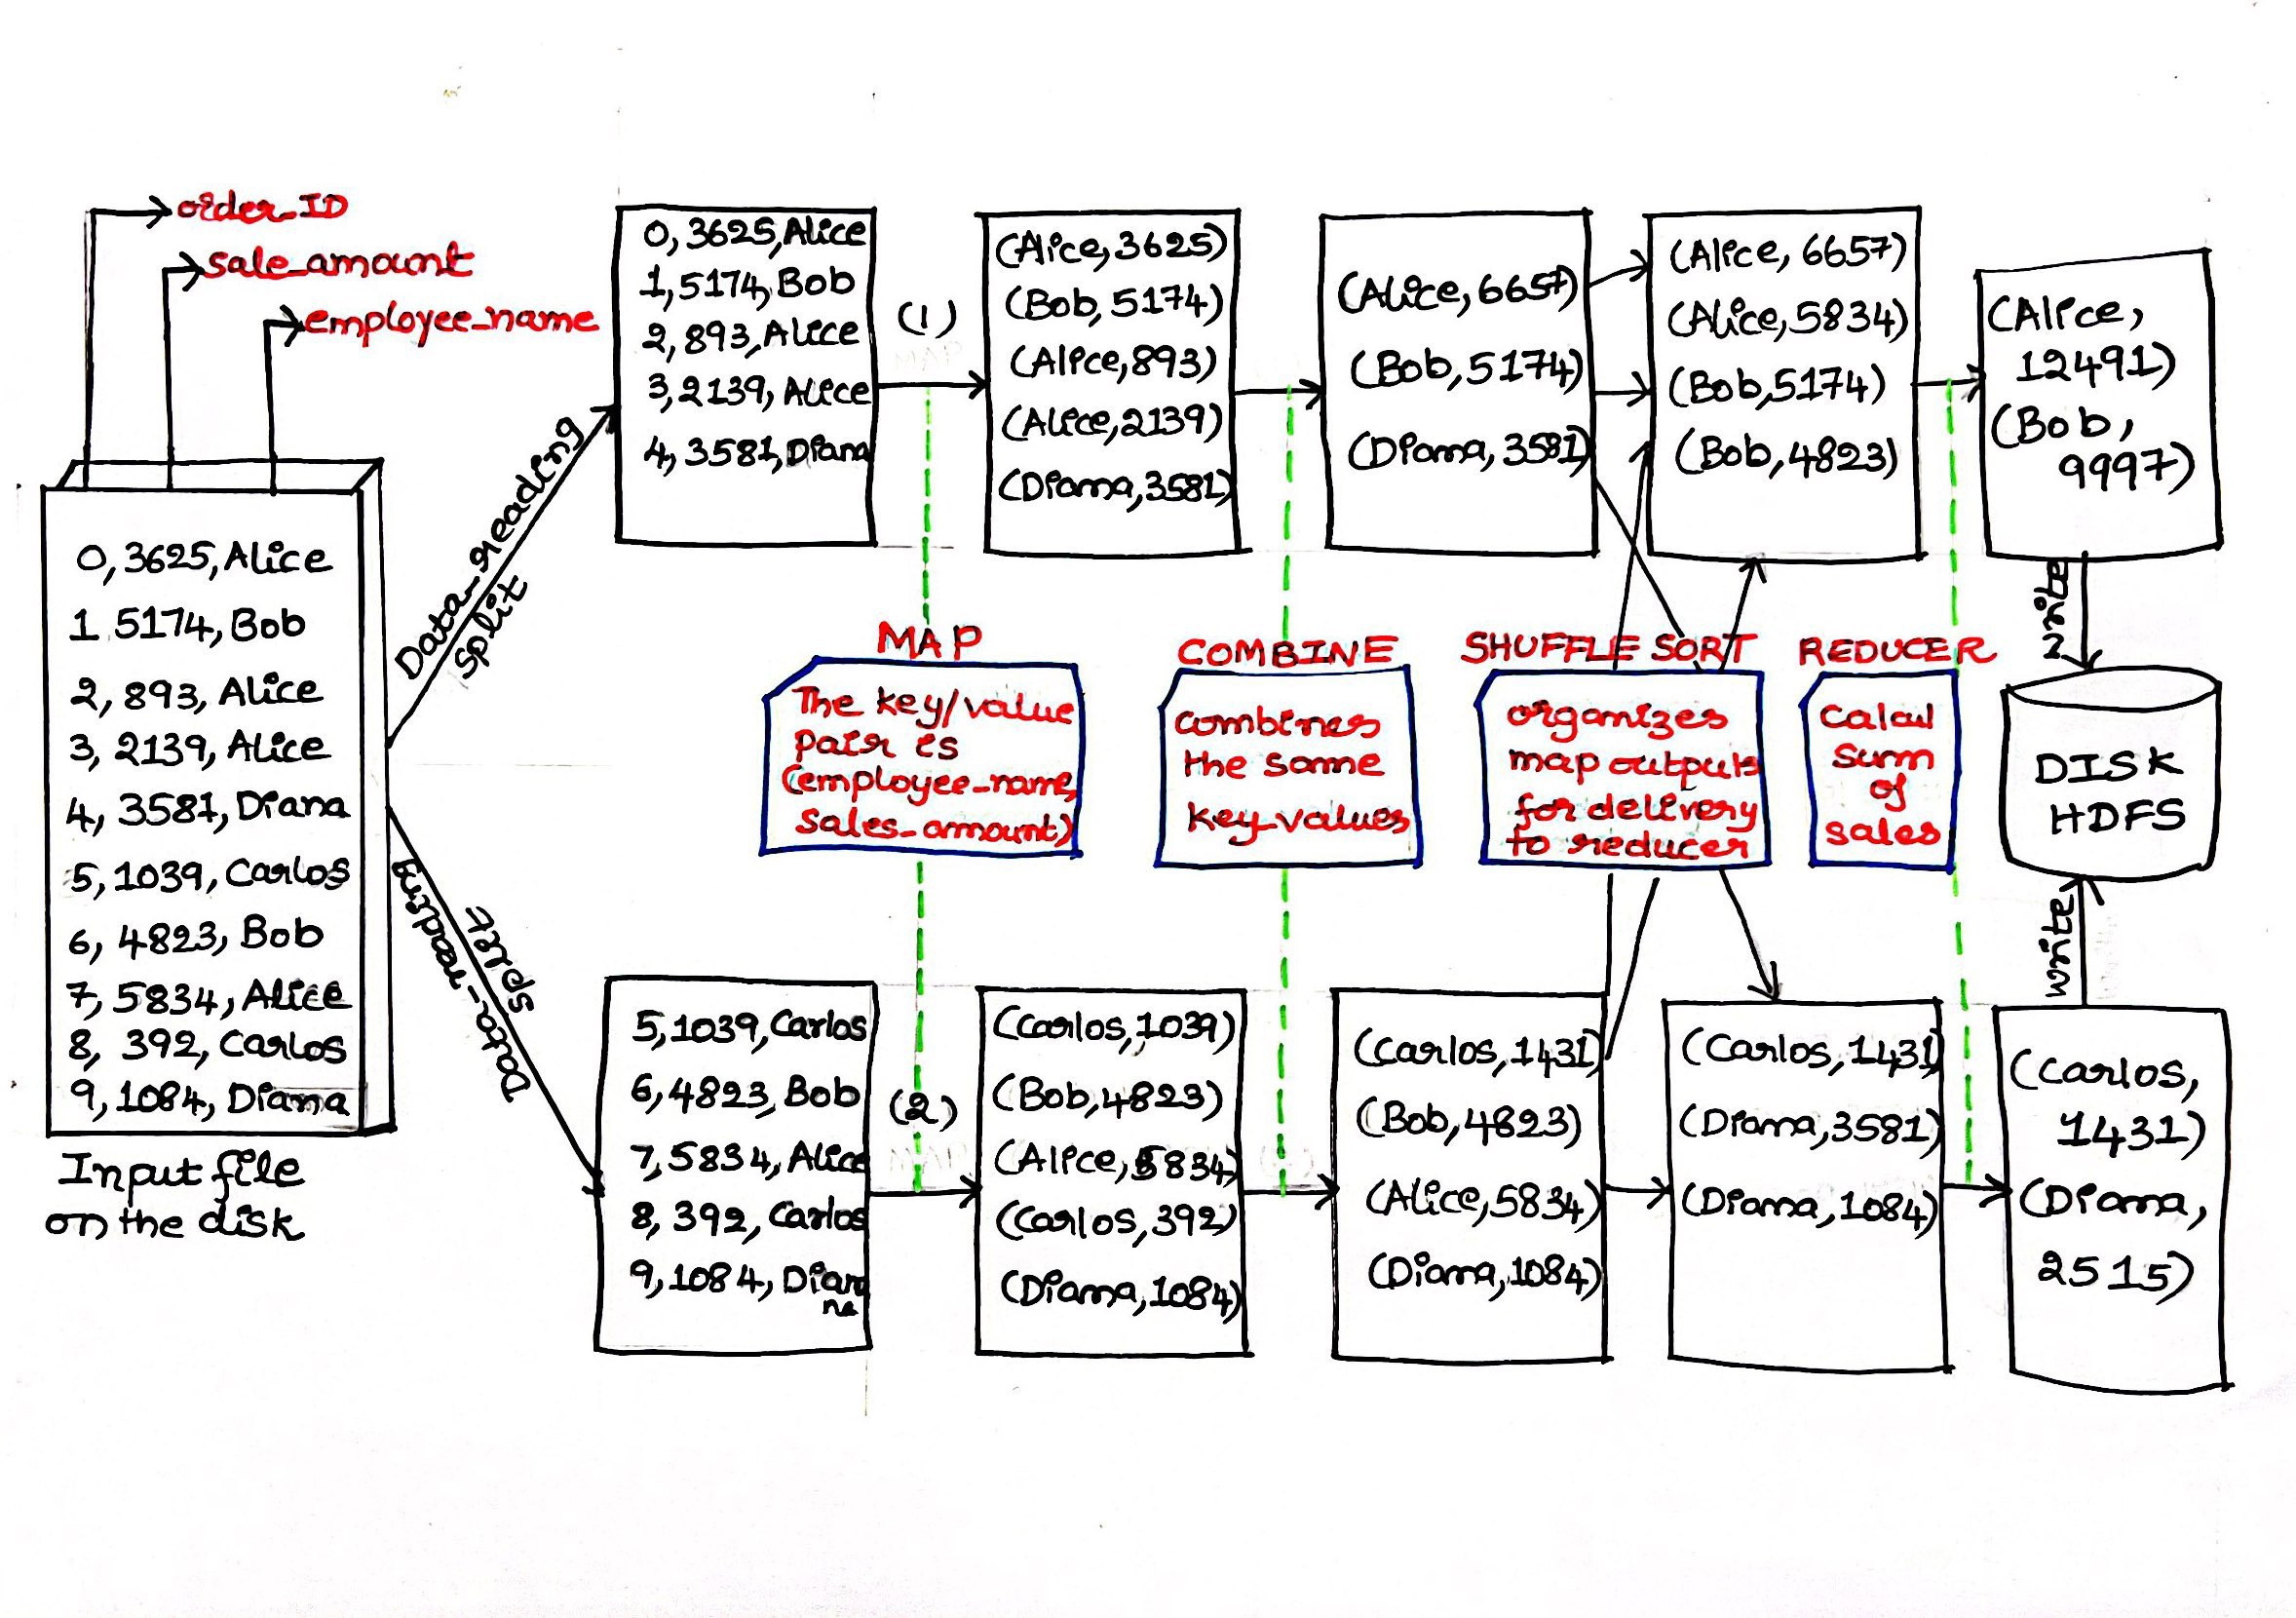 order_ID
sale_amount
employee_name
0, 3625, Alice
1 5174, Bob
2, 893, Alice
3, 2139, Alice
4, 3581, Diana
5, 1039, Carlos
6, 4823, Bob
7, 5834, Alice
8, 392, Carlos
9, 1084, Diana
Input file
on the disk
Data-reading
split
Data-reading
split
0, 3625, Alice
1, 5174, Bob
2, 893, Alice
3, 2139, Alice
4, 3581, Diana
(1)
(Alice, 3625)
(Bob, 5174)
(Alice, 893)
(Alice, 2139)
(Diana, 3581)
(Alice, 6657)
(Bob, 5174)
(Diana, 3581)
(Alice, 6657)
(Alice, 5834)
(Bob, 5174)
(Bob, 4823)
(Alice,
12491)
(Bob,
9997)
write
MAP
The key/value
pair is
(employee_name,
sales_amount)
COMBINE
combines
the same
key-values
SHUFFLE SORT
organizes
map outputs
for delivery
to reducer
REDUCER
calcul
sum
of
sales
DISK
HDFS
write
5, 1039, Carlos
6, 4823, Bob
7, 5834, Alice
8, 392, Carlos
9, 1084, Dian
na
(2)
(Carlos, 1039)
(Bob, 4823)
(Alice, 5834)
(Carlos, 392)
(Diana, 1084)
(Carlos, 1431)
(Bob, 4823)
(Alice, 5834)
(Diana, 1084)
(Carlos, 1431)
(Diana, 3581)
(Diana, 1084)
(Carlos,
1431)
(Diana,
2515)